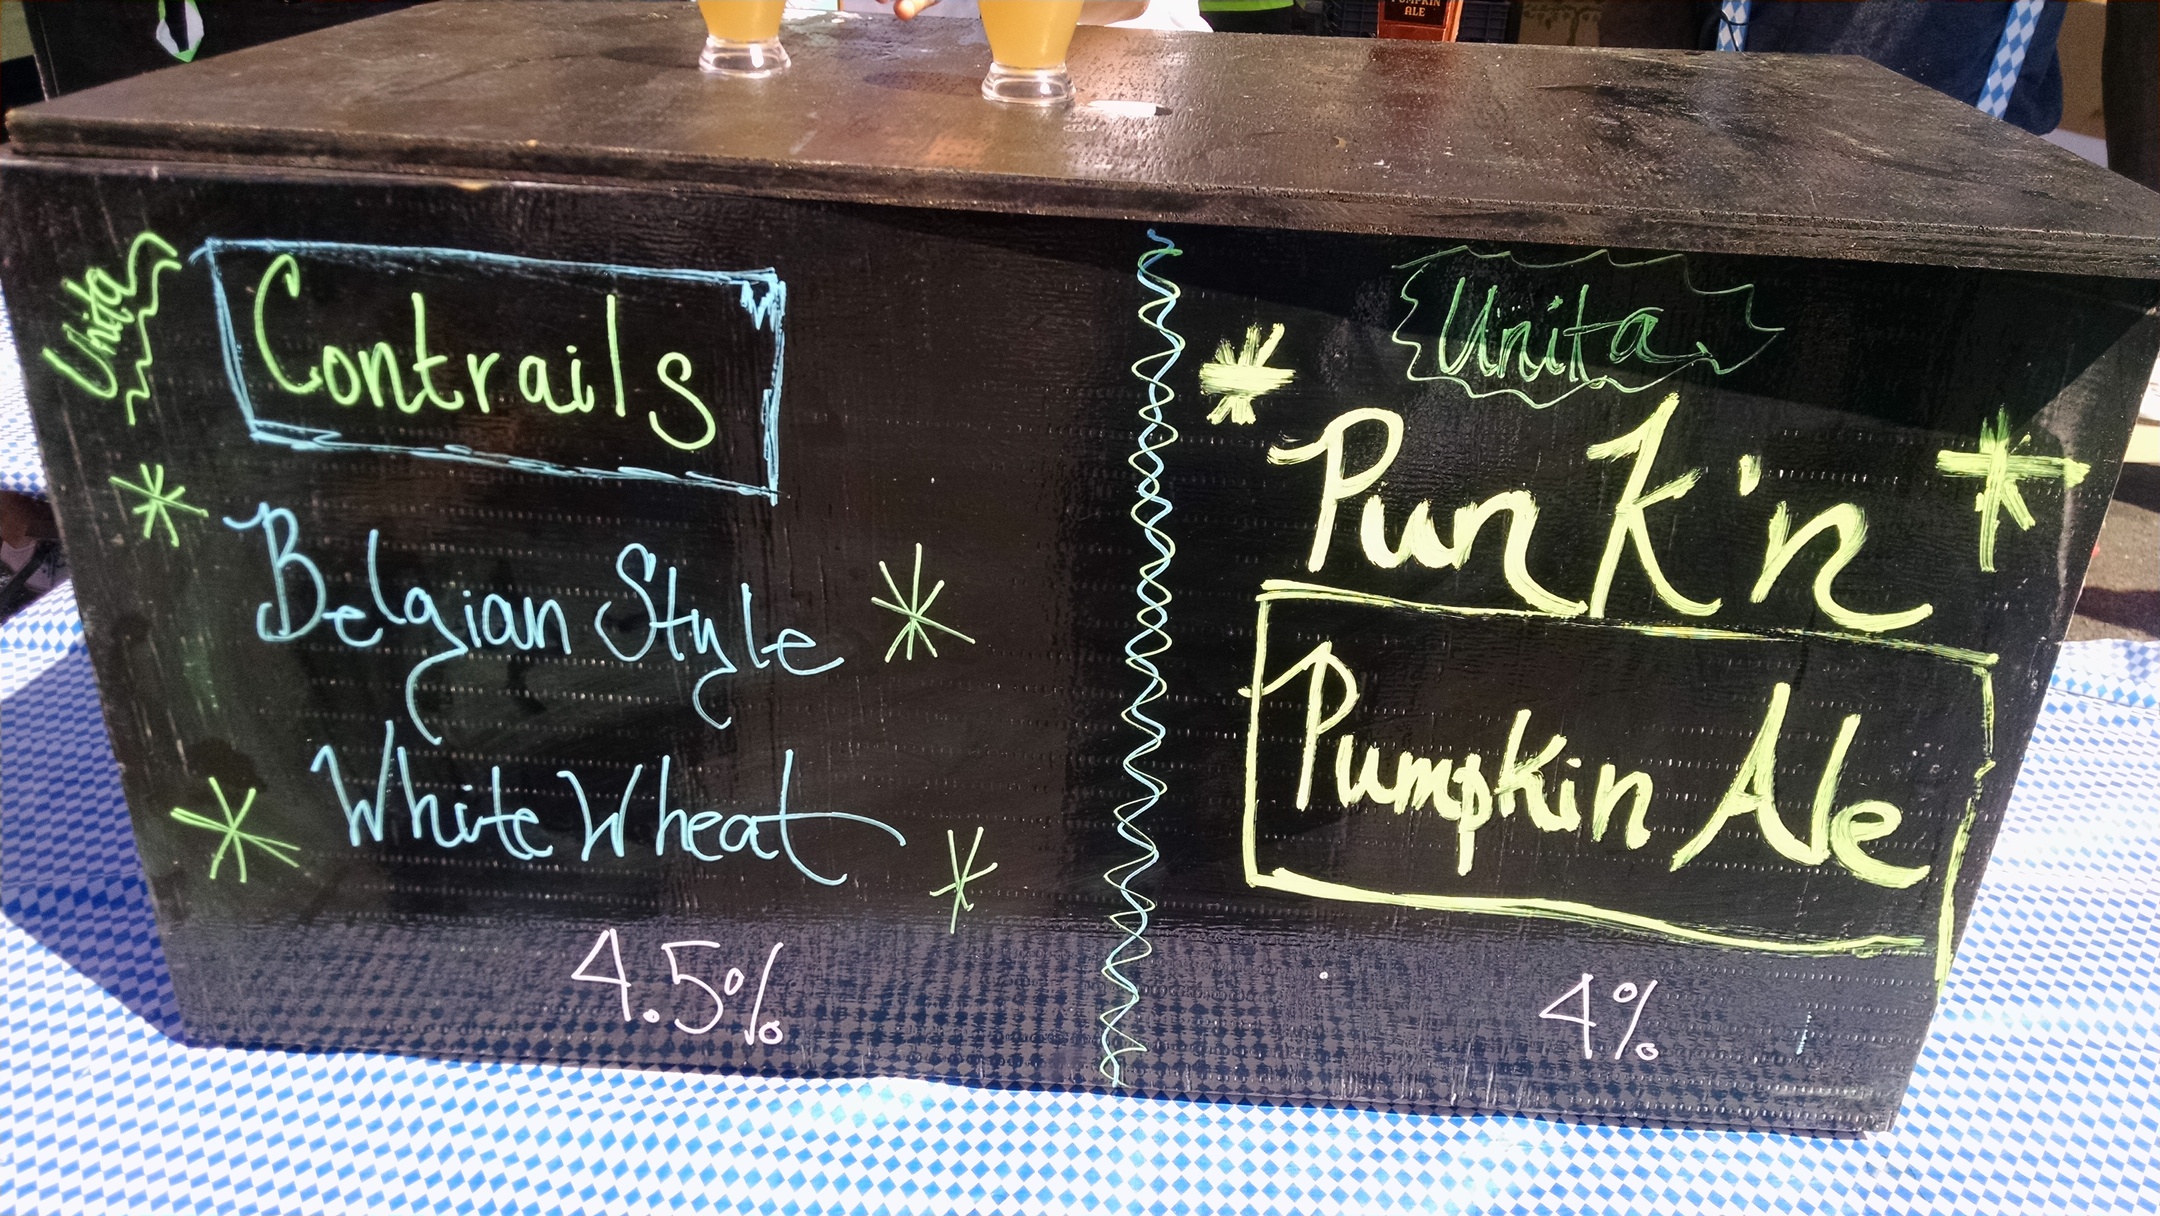 PUMPKIN
ALE
Unita
Contrails
Belgian Style
White Wheat
4.5%
Unita
Punk'n
Pumpkin Ale
4%